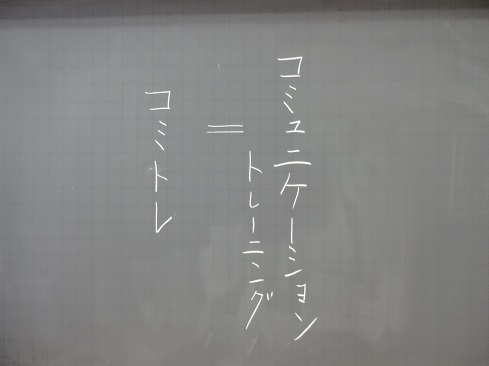 コミュニケーション
トレーニング
=
コミトレ